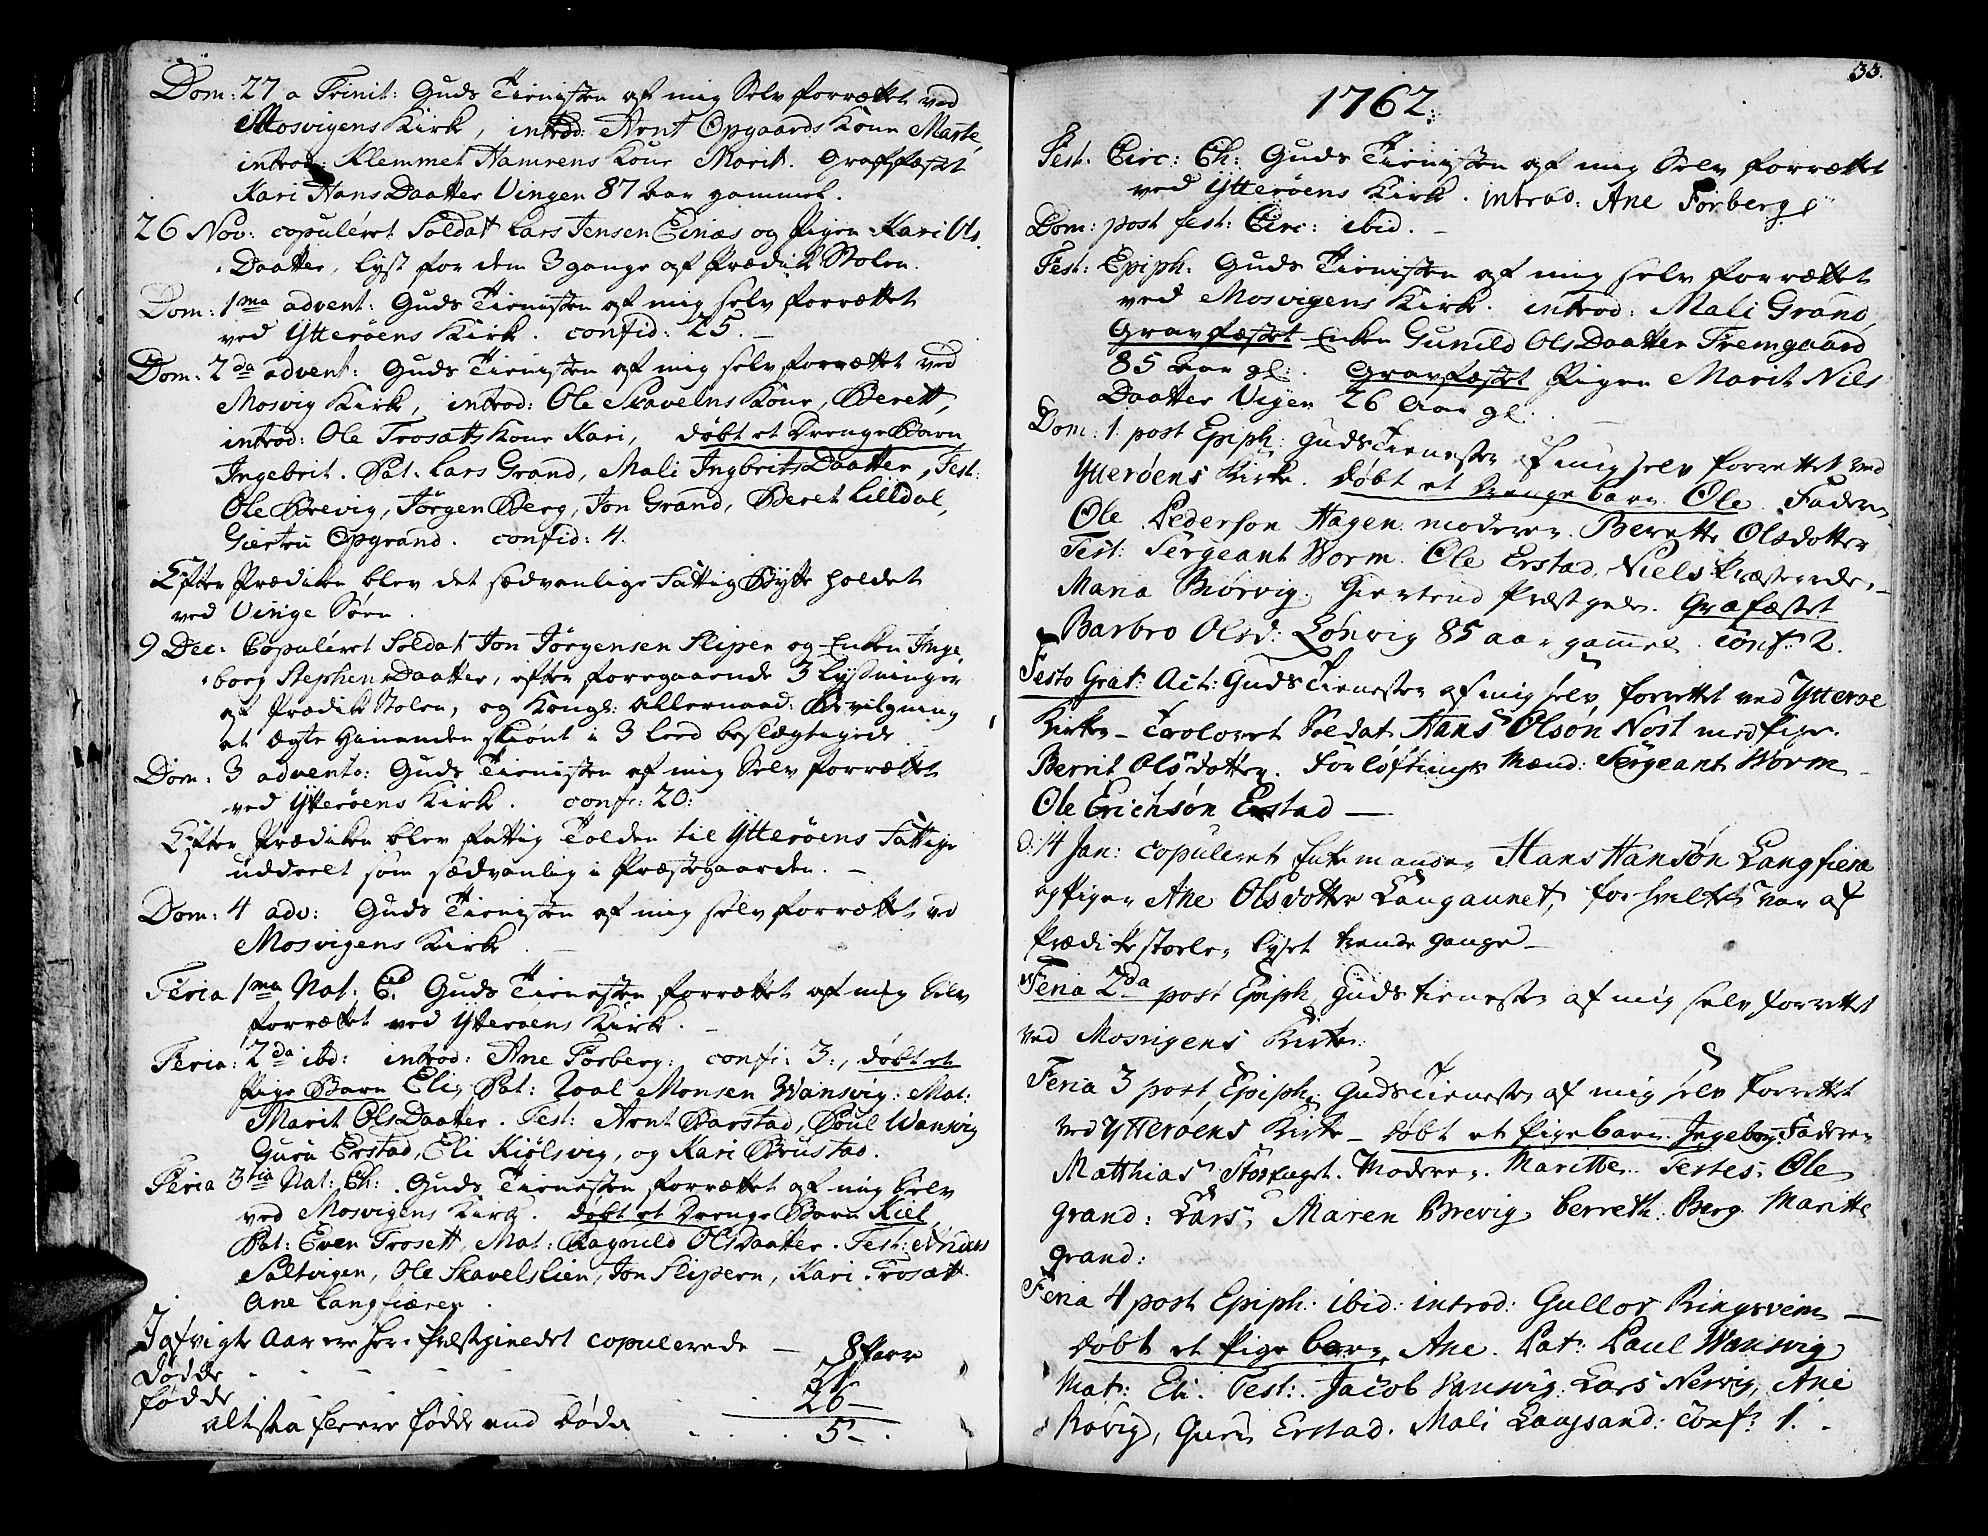 Dom: 27 a Trinit: Guds Tienisten af mig Selv forrættet ved
Mosvigens Kirk, introd: Arnt Opgaards Kone Marte,
introd: Klemmet Hamrens Kone Marit. Graffæstet
Kari Hans Daatter Vingen 87 aar gammel.
26 Nov: copuleret Soldat Lars Jensen Einæs og Pigen Kari Ols
Daatter, lyst for dem 3 gange af Prædik Stolen.
Dom: 1ma advent: Guds Tienisten af mig selv forrættet
ved Ytterøens Kirk. confid: 25.
Dom: 2da advent: Guds Tienisten af mig selv forrættet ved
Mosvig Kirk, introd: Ole Skavelns Kone, Berett,
introd: Ole Trosatts Kone Kari, døbt et Drenge Barn
Ingebrit. Pat. Lars Grand, Mali Ingbrits Daatter, Test:
Ole Brevig, Jørgen Berg, Jon Grand, Beret Lilldal,
Giertru Opgrand. confid: 4.
Efter Prædiken blev det sædvanlige Fattig Bytte holdet
ved Vinge Søen.
9 Dec: Copuleret Soldat Jon Jørgensen Sliper og Enken Inge
borg Stephens Daatter, efter foregaaende 3 lysninger
af Prædik Stolen, og Kongl: allernaad: Bevilgning
at ægte hinanden skiønt i 3 leed beslægtigede
Dom: 3 advento: Guds Tienisten af mig Selv forrættet
ved Ytterøens Kirk. conf: 20:
Efter Prædiken blev fattig Tolden til Ytterøens Fattige
uddeelt som sædvanlig i Præstegaarden.
Dom: 4 adv: Guds Tienisten af mig selv forrættet ved
Mosvigens Kirk.
Feria 1ma Nat: C: Guds Tienesten forrættet af mig Selv
forrættet ved Ytterøens Kirk.
Feria: 2da ibd: introd: Ane Forberg: confi: 3:, døbt et
Pige Barn Eli, Pat: Zoal Monsen Wansvig: Mat:
Marit Ols Daatter. Test: Arnt Barstad, Poul Wansvig
Guru Erstad, Eli Kiølsvig, og Kari Brustad.
Feria 3tia Nat: Ch: Guds Tienesten forrættet af mig Selv
ved Mosvigens Kirk. døbt et Drenge Barn Kiel
Pat: Even Trosett, Mat: Ragnild Ols Daatter. Test: Anders
Saltvigen, Ole Skavelslien, Jon Slipern, Kari Trosætt.
Ane Langfiæren.
I afvigte Aar ere her i Præstgieldet copulerede 8 Paar
Dødde 21
fødde 26
altsaa flere fødde end døde 5
33.
1762.
Fest. Circ: Ch: Guds Tienisten af mig Selv forrættet
ved Ytterøens Kirk. introd: Ane Forberg
Dom: post fest: Circ: ibid.
Fest: Epiph: Guds Tienisten af mig selv forrættet
ved Mosvigens Kirk. introd: Mali Grand
Gravfæstet Enken Gunild Ols Daatter Fremgaard
85 aar gl: Gravfæstet Pigen Marit Nils
Daatter Vigen 26 Aar gl.
Dom: 1 post Epiph: Guds Tienesten af mig selv forrettet ved
Ytterøens Kirke. døbt et Drengebarn Ole. Faderen
Ole Pedersøn Hagen moderen Berette Olsdotter
Test: Sergeant Worm. Ole Erstad, Niels
Maria Biørvig. Giertrud Græfæstet
Barbro Olsd: Lønvig 85 aar gammel. Conf: 2.
Festo Grat: Act: Guds Tienesten af mig selv forrettet ved Ytterøe
Kirke – Trolovet Soldat Hans Olsøn Nøst med Pigen
Berrit Olsdotter. Forløftings Mænd: Sergeant Worm
Ole Erichsøn Erstad —
d: 14 Jan: copuleret Enkemanden Hans Hansøn Langfiera
og Pigen Ane Olsdotter Langaunet, for hvilke var af
Prædikestoelen lyset trende gange –
Feria 2da post Epiph Guds tienesten af mig selv forrettet
ved Mosvigens Kirke:
Feria 3 post Epiph. Guds Tienesten af mig selv forrettet
ved Ytterøens Kirke – døbt et Pigebarn: Ingeborg Faderen
Matthias Moderen. Maritte. Testes: Ole
grand: Lars, Maren Brevig, berreth. Berg. Maritte
grand:
Feria 4 post Epiph: ibid: introd: Gullov Ringsveim —
døbt et Pige barn, Ane. Pat: Paul Wansvig
Mat: Eli. Test: Jacob Vansvig: Lars Nervig, Ane
Røvig, Guru Erstad. Mali Langsand: Conf: 1.